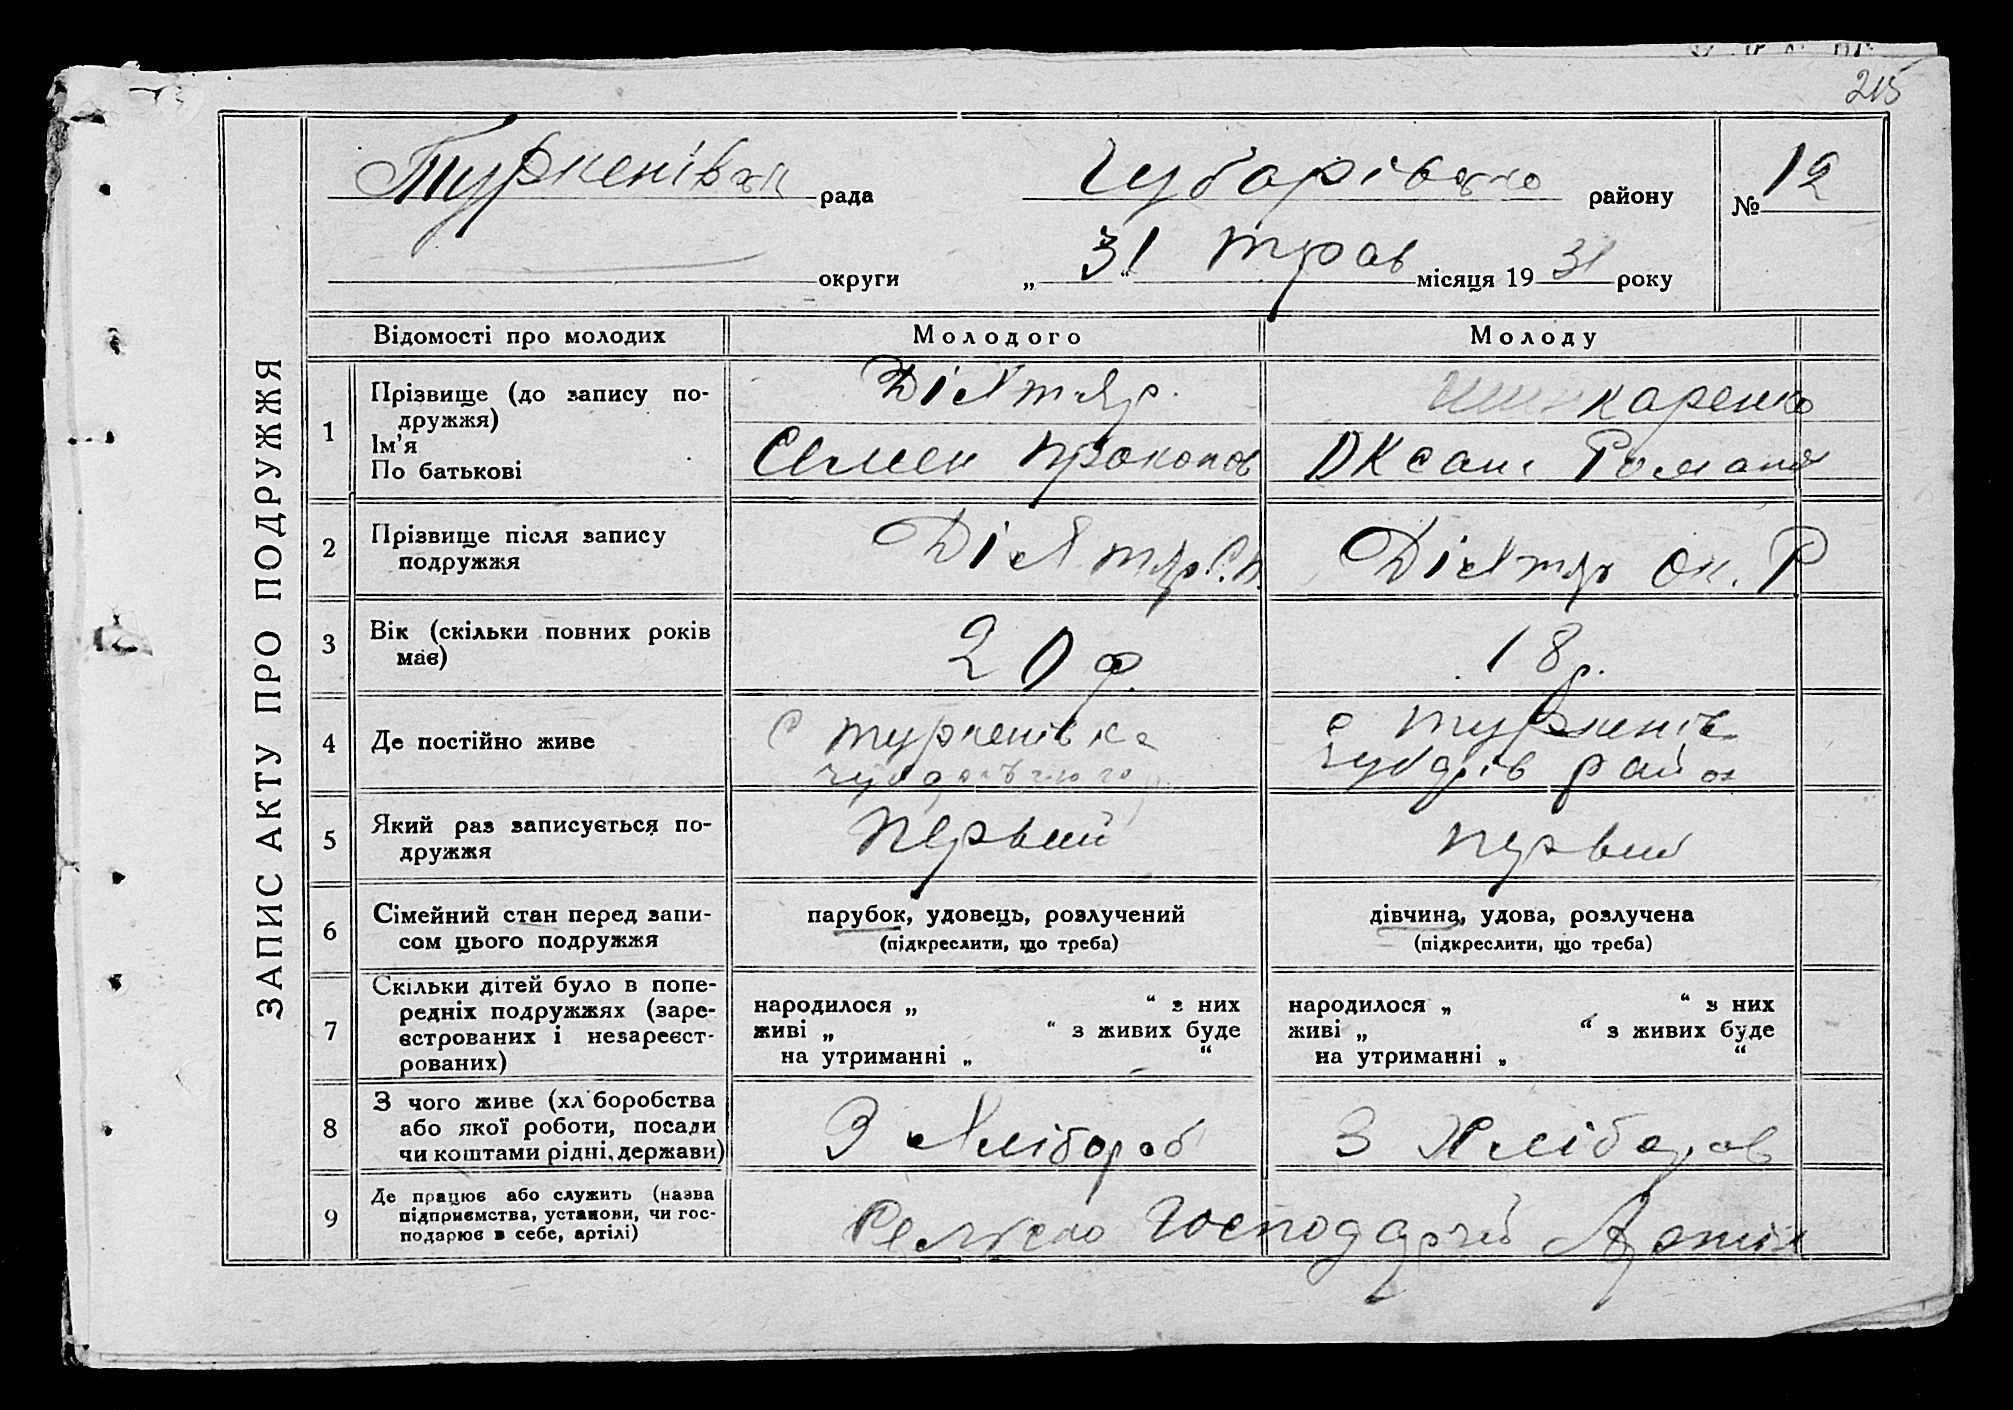 215
ЗАПИС АКТУ ПРО ПОДРУЖЖЯ
Туркенівка рада Чубарівсько району № 12
округи „ 31 “ трав місяця 19 31 року
Відомості про молодих Молодого Молоду
1 Прізвище (до запису по-
дружжя)
Ім’я
По батькові
Дігтяр.
Семен Прокопов
Шинкаренко
Оксан Романов
2 Прізвище після запису
подружжя
Дігтяр С.П.
Дігтяр Ок. Р
3 Вік (скільки повних років
має)
20 р.
18 р.
4 Де постійно живе
с Туркенівка
с Туркенів
Чубарів район
5 Який раз записується по-
дружжя
первий
первий
6 Сімейний стан перед запи-
сом цього подружжя
парубок, удовець, розлучений
(підкреслити, що треба)
дівчина, удова, розлучена
(підкреслити, що треба)
7 Скільки дітей було в попе-
редніх подружжях (заре-
єстрованих і незареєст-
рованих)
народилося „ “ з них
живі „ “ з живих буде
на утриманні „ “
народилося „ “ з них
живі „ “ з живих буде
на утриманні „ “
8 З чого живе (хл боробства
або якої роботи, посади
чи коштами рідні, держави)
З Хлібороб
З Хліборов
9 Де працює або служить (назва
підприємства, установи, чи гос-
подарює в себе, артілі)
Господарчий Артіл